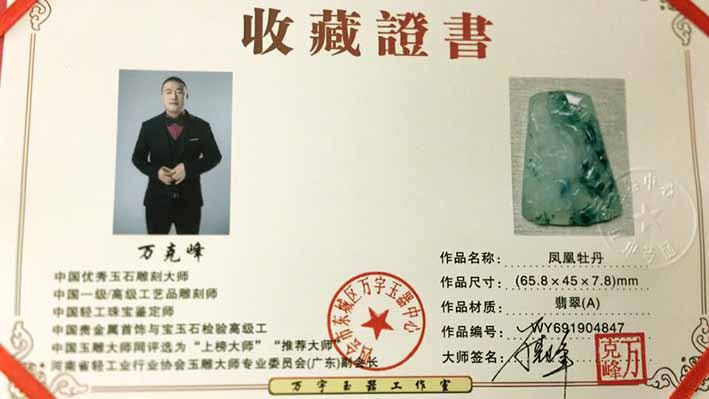 收藏證書
万克峰
中国优秀玉石雕刻大师
中国一级/高级工艺品雕刻师
中国轻工珠宝鉴定师
中国贵金属首饰与宝玉石检验高级工
中国玉雕大师网评选为“上榜大师”“推荐大师”
河南省轻工业行业协会玉雕大师专业委员会(广东)副会长
作品名称: 凤凰牡丹
作品尺寸: (65.8×45×7.8)mm
作品材质: 翡翠(A)
作品编号: WY691904847
大师签名: 万克峰
市东城区万字玉器中心
万克峰
万字玉器工作室